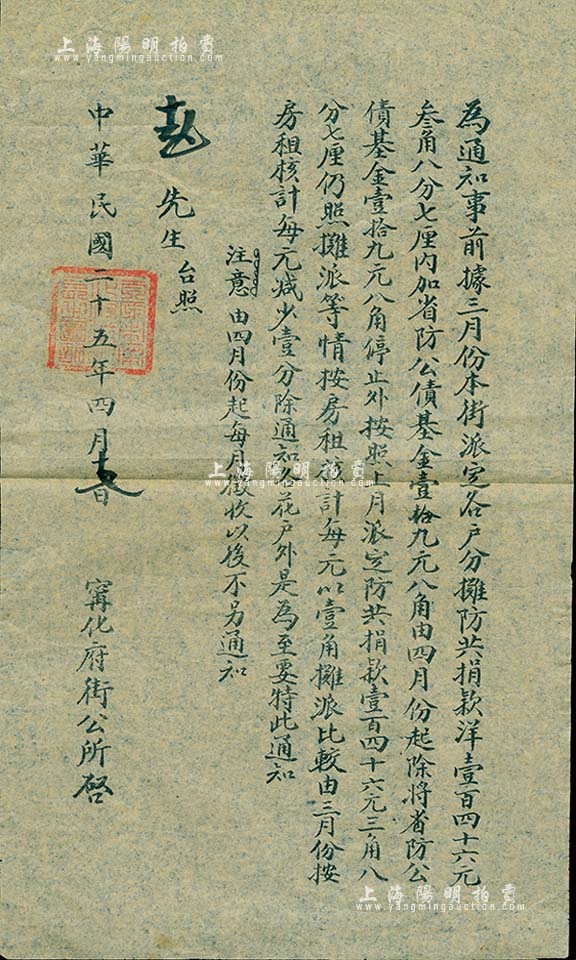 上海陽明拍賣
www.yangmingauction.com
為通知事前據三月份本街派定各戶分攤防共捐款洋壹百四十六元
叁角八分七厘內加省防公債基金壹拾九元八角由四月份起除將省防公
債基金壹拾九元八角停止外按照上月派定防共捐款壹百四十六元三角八
分七厘仍照攤派等情按房租核計每元以壹角攤派比較由三月份按
房租核計每元減少壹分除通知各花戶外是為至要特此通知
注意由四月份起每月徵收以後不另通知
先生台照
中華民國二十五年四月 日
寗化府街公所啓
上海陽明拍賣
www.yangmingauction.com
上海陽明拍賣
www.yangmingauction.com